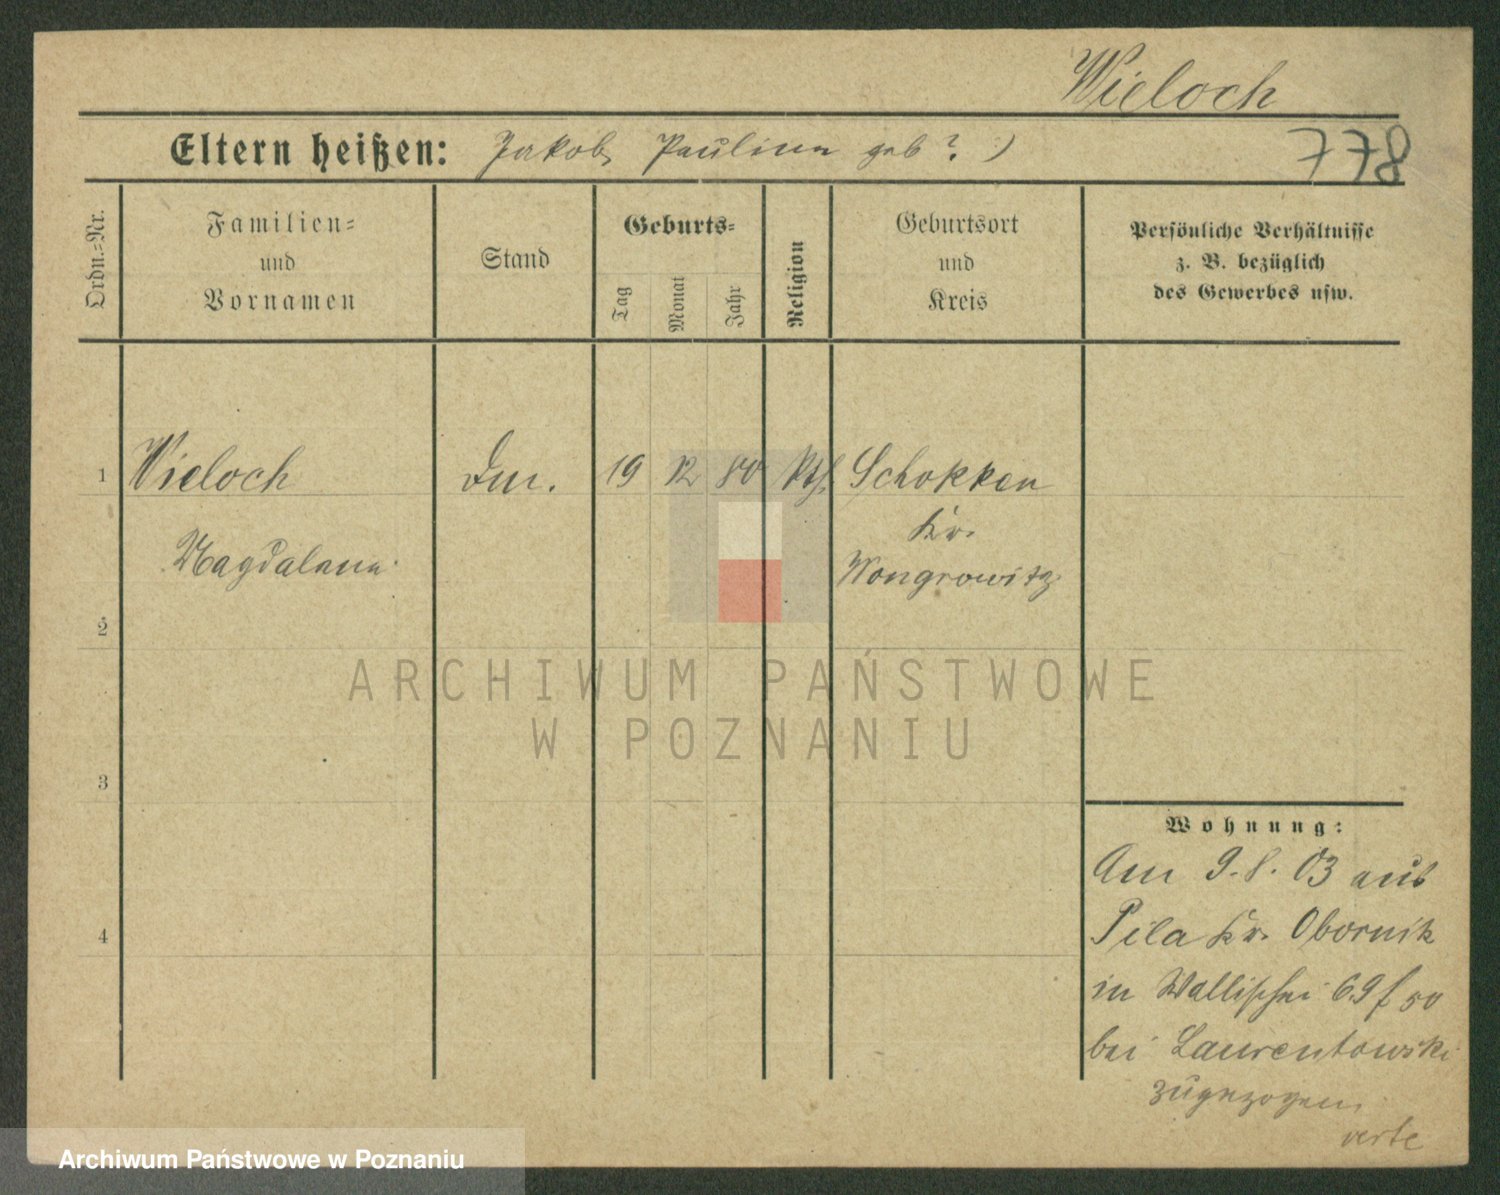 Wieloch
Eltern heißen: Jakob, Pauline geb ? )
778
Ordn.=Nr.
Familien=
und
Vornamen
Stand
Geburts=
Tag
Monat
Jahr
Religion
Geburtsort
und
Kreis
Persönliche Verhältnisse
z. B. bezüglich
des Gewerbes usw.
1 Wieloch 19 12 80 kth. Schokken
Kr.
Magdalena Wongrowitz
2
ARCHIWUM PAŃSTWOWE
W POZNANIU
3
4
Wohnung:
Am 9.8.03 aus
Pila Kr. Obornik
in Wallischei 69
bei Laurentowski
zugezogen.
verte
Archiwum Państwowe w Poznaniu